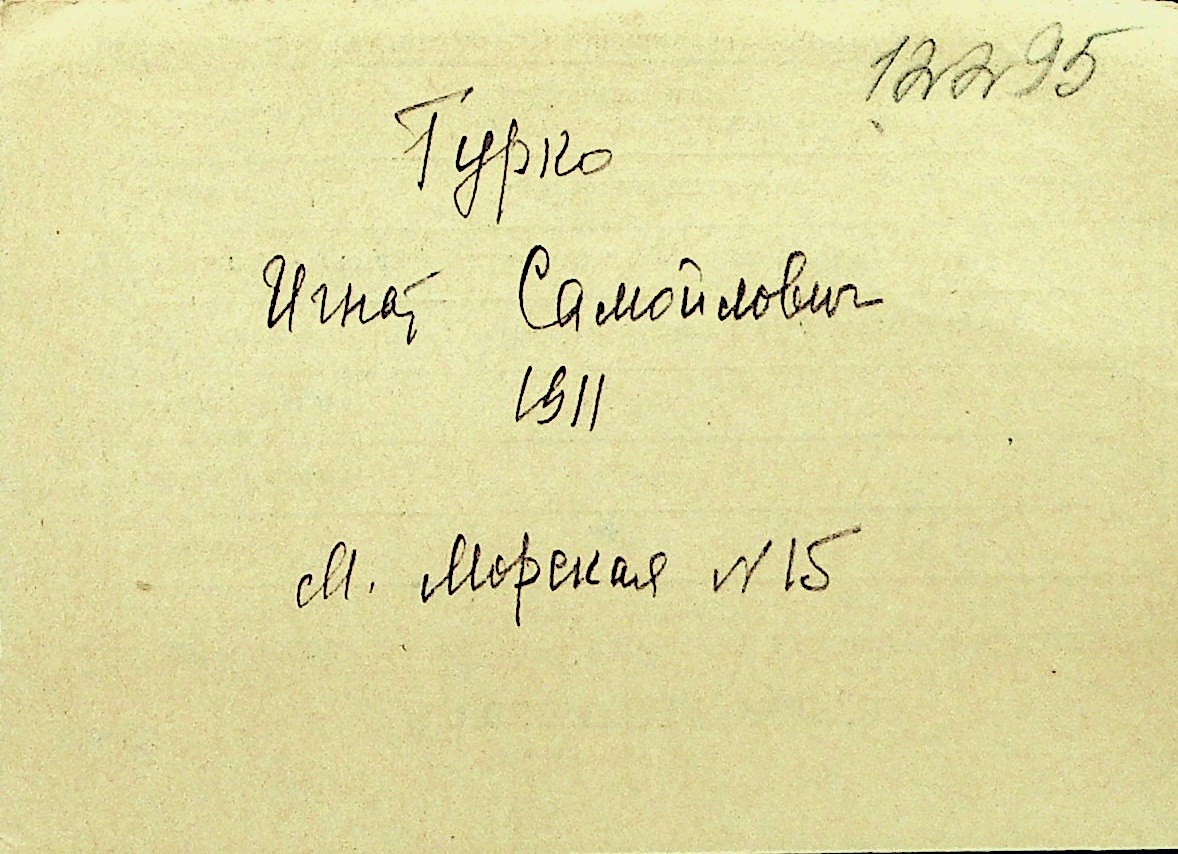 12295
Гурко
Игнат Самойлович
1911
М. Морская N 15